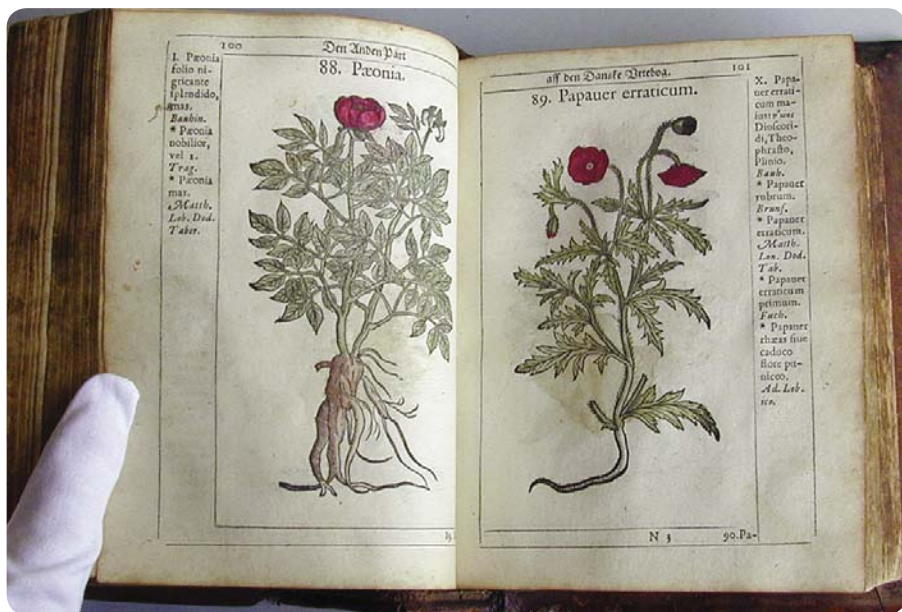 100
Den Anden Part
88. Pæonia.
I. Pæonia
folio ni-
gricante
splendido,
mas.
Bauhin.
* Pæonia
nobilior,
vel 1.
Trag.
* Pæonia
mas.
Matth.
Lob. Dod.
Taber.
aff den Danske Urtebog.
101
89. Papauer erraticum.
X. Papa-
uer errati-
cum ma-
ius
Dioscori-
di, Theo-
phrasto,
Plinio.
Bauh.
* Papauer
rubrum.
Brunf.
* Papauer
erraticum.
Matth.
Lon. Dod.
Tab.
* Papauer
erraticum
primum.
Fuch.
* Papauer
rhæas siue
caduco
flore pu-
niceo.
Ad. Lob.
ico.
N 3
90. Pa-